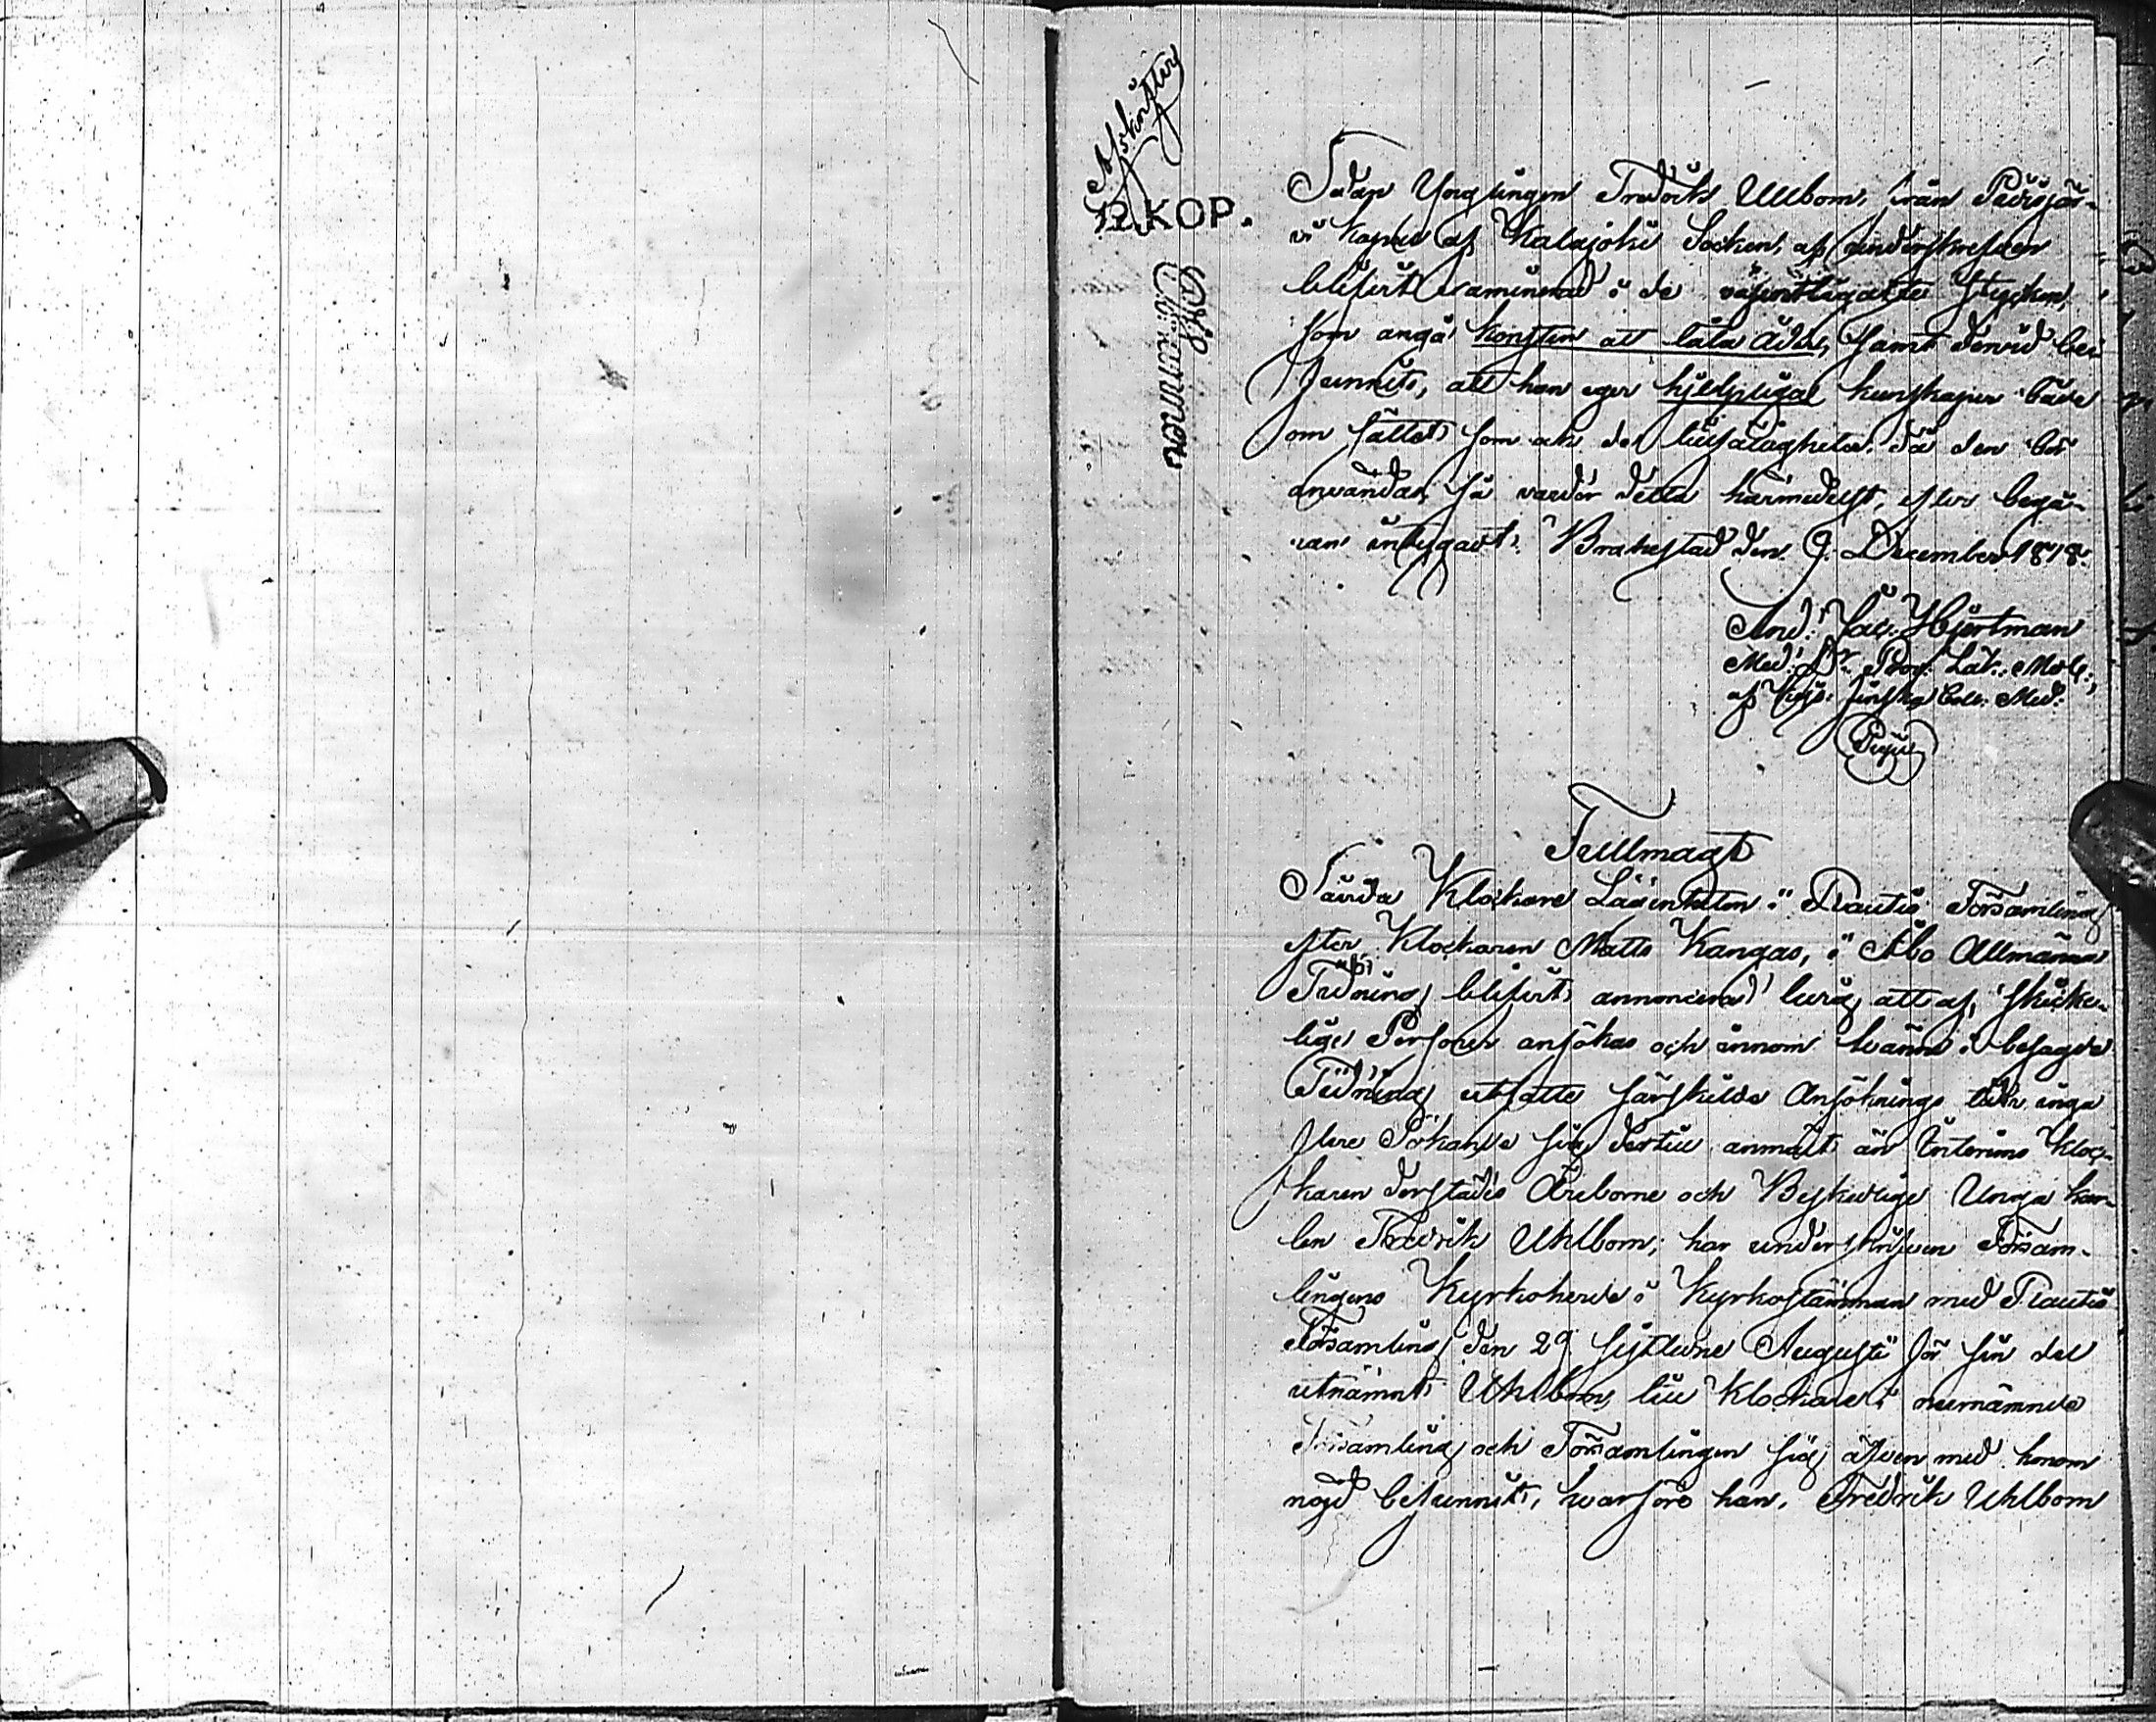 Afskrifter
12 KOP.
Sedan Ynglingen Fredrik Uhlbom, från Pidisjär-
vi kapell af Kalajoki Socken, af underskrefven
blifvit examinerad i de väsentligaste stycken,
som angå konsten att låta åder, samt dervid be-
funnits, att han eger hjelpliga kunskaper både
om sättet som ock de tillfälligheter, då den bör
användas, så varder detta härmedelst, efter begä-
ran intygadt. Brahestad den 9. December 1818.
And: Jac: Hjertman
Med: Dr Prov: Läk: Medl:
af Kejs: Finska Coll: Med:
Fullmagt
Såvida Klockare Lägenheten i Rautio Församling
efter Klockaren Matts Kangas, i Åbo Allmänna
Tidning blifvit annoncerad ledig att af skicke-
lige Personer ansökas och innom tvänne i besagde
Tidning utsatte särskilde Ansöknings tider inga
flere Sökande sig dertill anmält än Interims Kloc-
karen derstädes Äreborne och Beskedlige Unga kar-
len Fredrik Uhlbom; har underskrifven Försam-
lingens Kyrkoherde i Kyrkostämman med Rautio
Församling den 29 sistledne Augusti för sin del
utnämnt Uhlbom till Klockare i nurnämnde
Församling och Församlingen sig äfven med honom
nöjd befunnit, hvarföre han, Fredrik Uhlbom